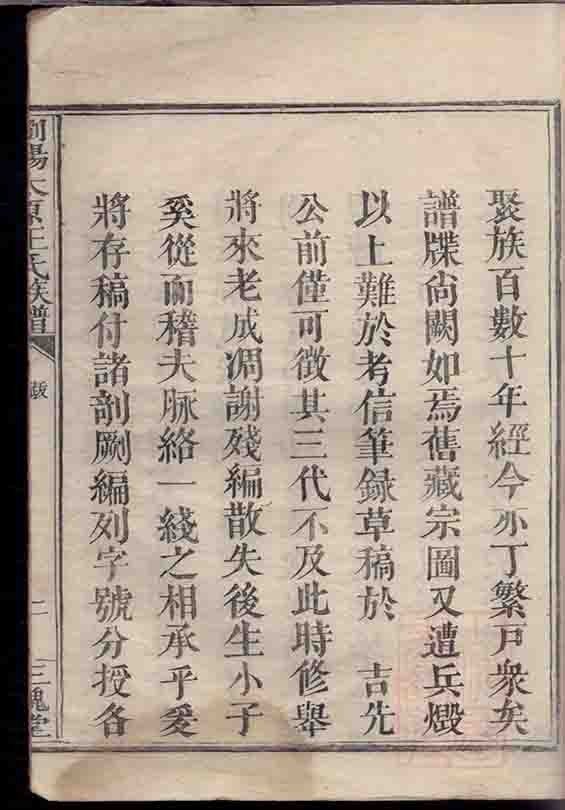 聚族百數十年經今亦丁繁戸衆矣
譜牒尚闕如焉舊藏宗圖又遭兵燬
以上難於考信筆録草稿於　吉先
公前僅可徵其三代不及此時修舉
將來老成凋謝殘編散失後生小子
奚從而稽夫脉絡一綫之相承乎爰
將存稿付諸剞劂編列字號分授各
瀏陽太原王氏族譜
跋
二
三槐堂